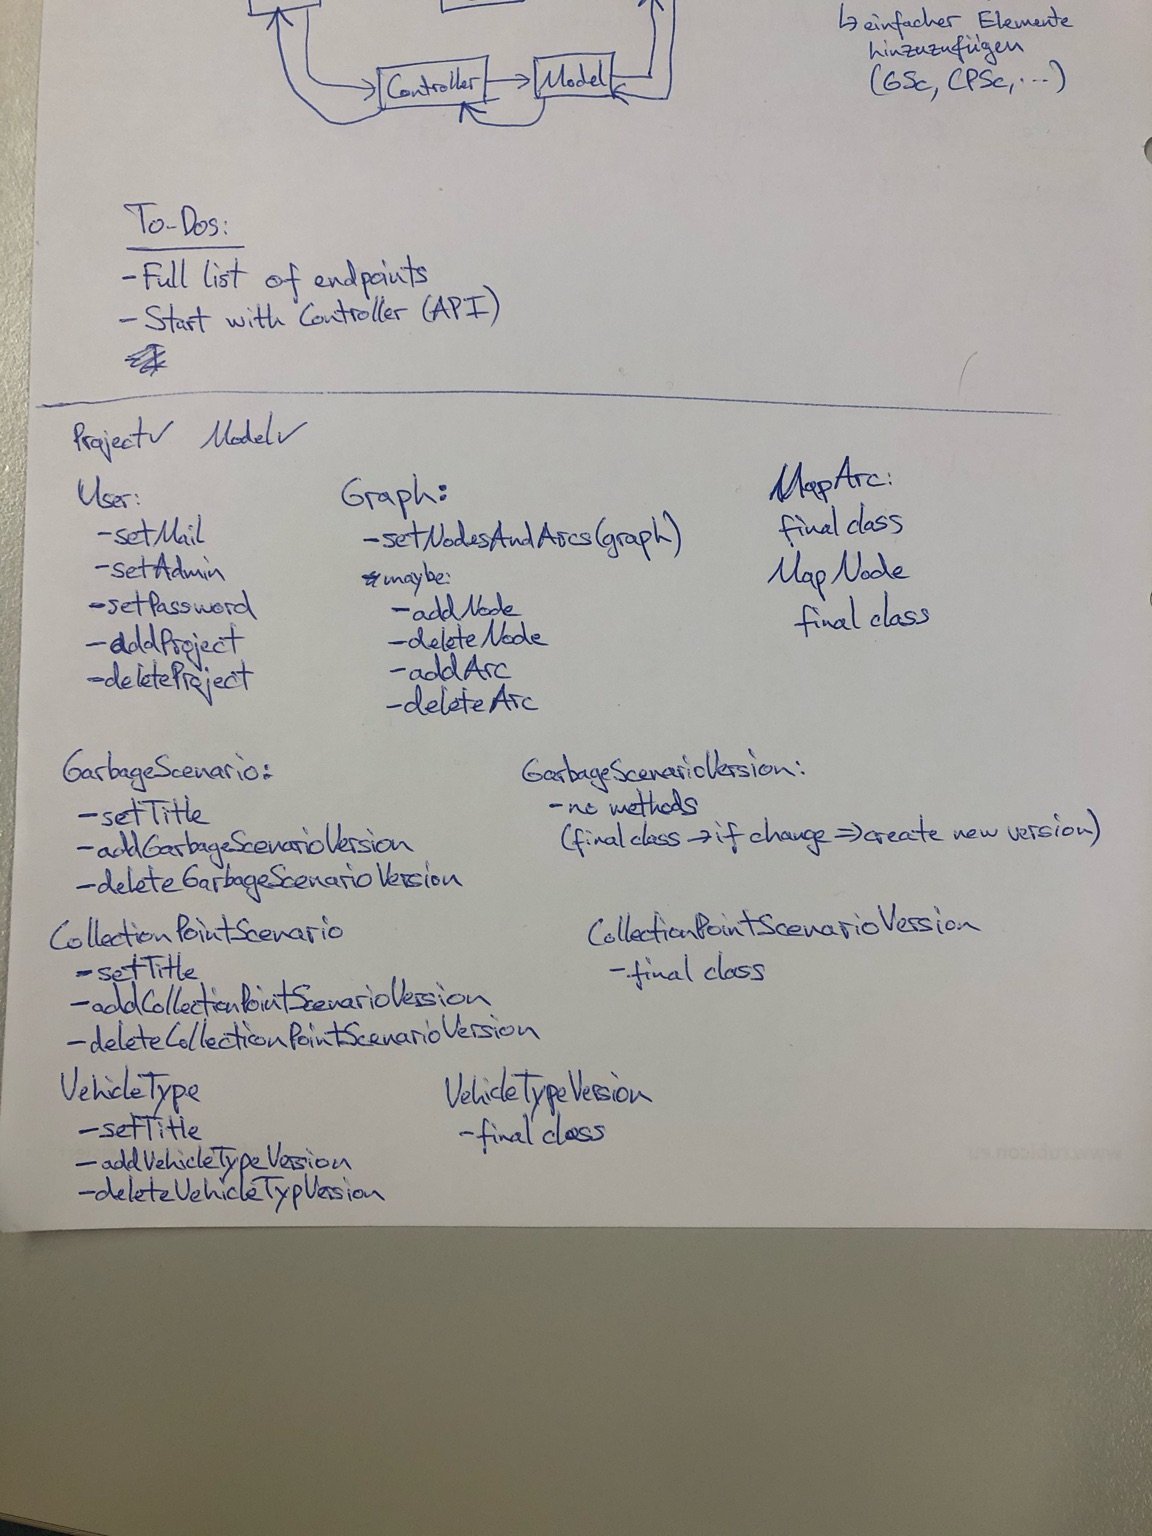 ↳ einfacher Elemente
hinzuzufügen
(GSc, CPSc, ...)
Controller
Model
To-Dos:
- Full list of endpoints
- Start with Controller (API)
Project✓ Model✓
User:
- setMail
- setAdmin
- setPassword
- addProject
- deleteProject
Graph:
- setNodesAndArcs(graph)
maybe:
- addNode
- deleteNode
- addArc
- deleteArc
MapArc:
final class
MapNode
final class
GarbageScenario:
- setTitle
- addGarbageScenarioVersion
- deleteGarbageScenarioVersion
GarbageScenarioVersion:
- no methods
(final class → if change => create new version)
CollectionPointScenario
- setTitle
- addCollectionPointScenarioVersion
- deleteCollectionPointScenarioVersion
CollectionPointScenarioVersion
- final class
VehicleType
- setTitle
- addVehicleTypeVersion
- deleteVehicleTypVersion
VehicleTypeVersion
- final class